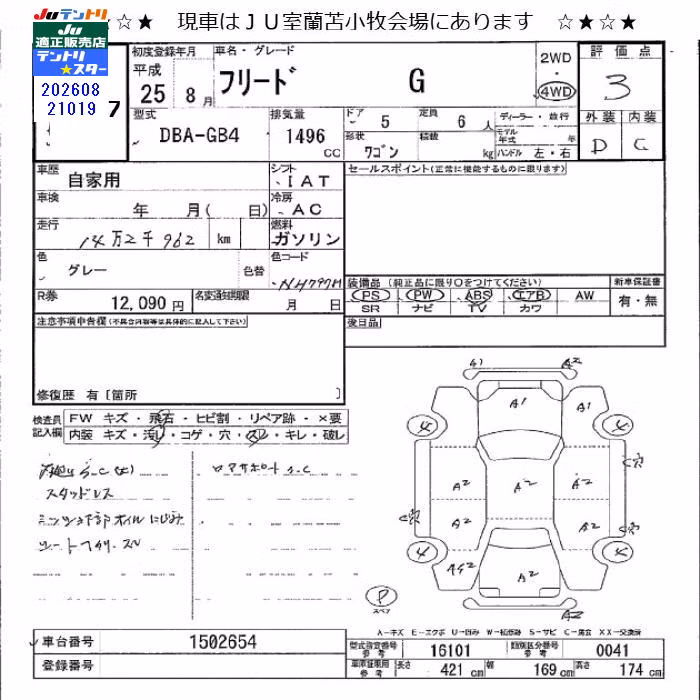 JUテントリ
適正販売店
テントリ
★スター
☆★ 現車はJU室蘭苫小牧会場にあります ☆★☆★
202608
21019 7
初度登録年月
平成
25 8月
車名・グレード
フリード G
2WD
4WD
評価点
3
外装 内装
D C
型式
DBA-GB4
排気量
1496 CC
ドア 5
定員 6人
形状 ワゴン
積載 kg
ディーラー・並行
モデル年式 年
ハンドル 左・右
車歴 自家用
シフト IAT
セールスポイント(正常に機能するものに限ります)
車検 年 月( 日)
冷房 AC
走行 14万2千962 km
燃料 ガソリン
色 グレー 色替
色コード NH797M
装備品 (純正品に限り○をつけてください)
新車保証書
PS PW ABS エアB AW
SR ナビ TV カワ
有・無
R券 12,090円
名変通知期限 月 日
後日品
注意事項申告欄(不具合内容等は具体的に記入して下さい)
修復歴 有〔箇所 〕
検査員
記入欄
FW キズ・飛石・ヒビ割・リペア跡・×要
内装 キズ・汚レ・コゲ・穴・スレ・キレ・破レ
スタッドレス
ロアサポート S.C
ミッション下部オイルにじみ
シートヘタリ・スレ
A1 A2
A1 A1
4 4
C穴
A2 A2 A2
A2 A2
C穴
4
A2
A2
P
スペア
A-キズ E-エクボ U-凹み W-補修跡 S-サビ C-腐食 XX-交換済
車台番号 1502654
登録番号
型式指定番号 参考 16101
類別区分番号 参考 0041
車庫証明用 参考 長さ 421cm 幅 169cm 高さ 174cm